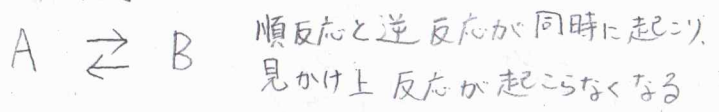 A ⇄ B 順反応と逆反応が同時に起こり、
見かけ上反応が起こらなくなる